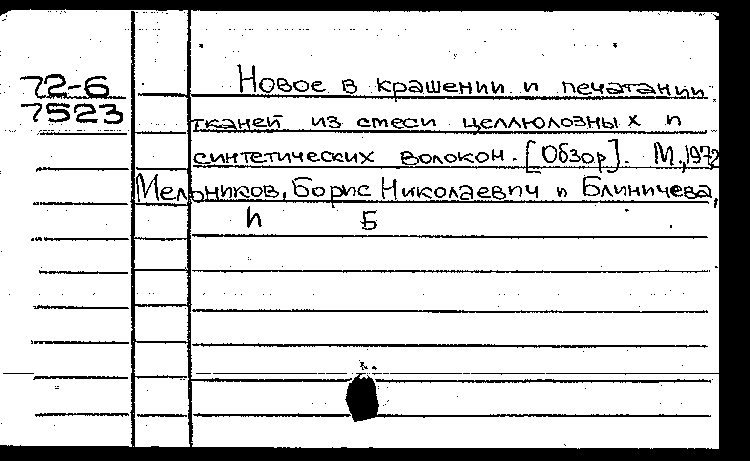 72-6
7523
Новое в крашении и печатании
тканей из смеси целлюлозных и
синтетических волокон. [Обзор]. М., 1972
Мельников, Борис Николаевич и Блиничева,
И Б